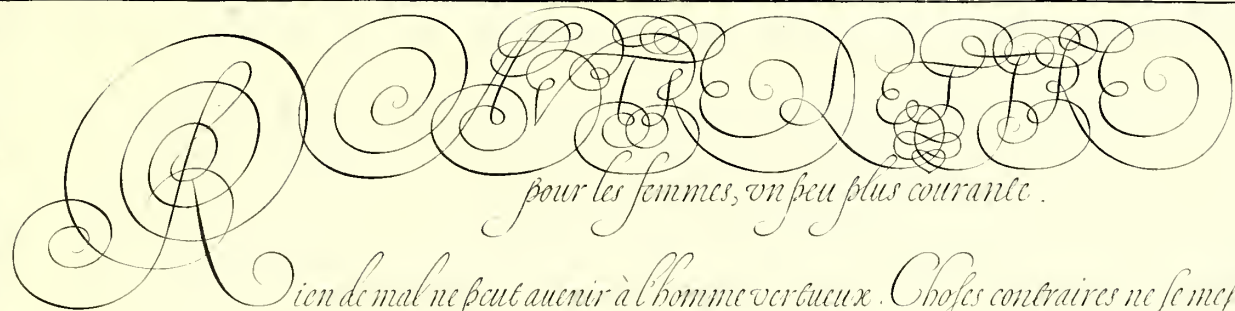 AVTRE LETTRE
pour les femmes, vn peu plus courante.
Rien de mal ne peut auenir à l'homme vertueux. Choſes contraires ne ſe meſ